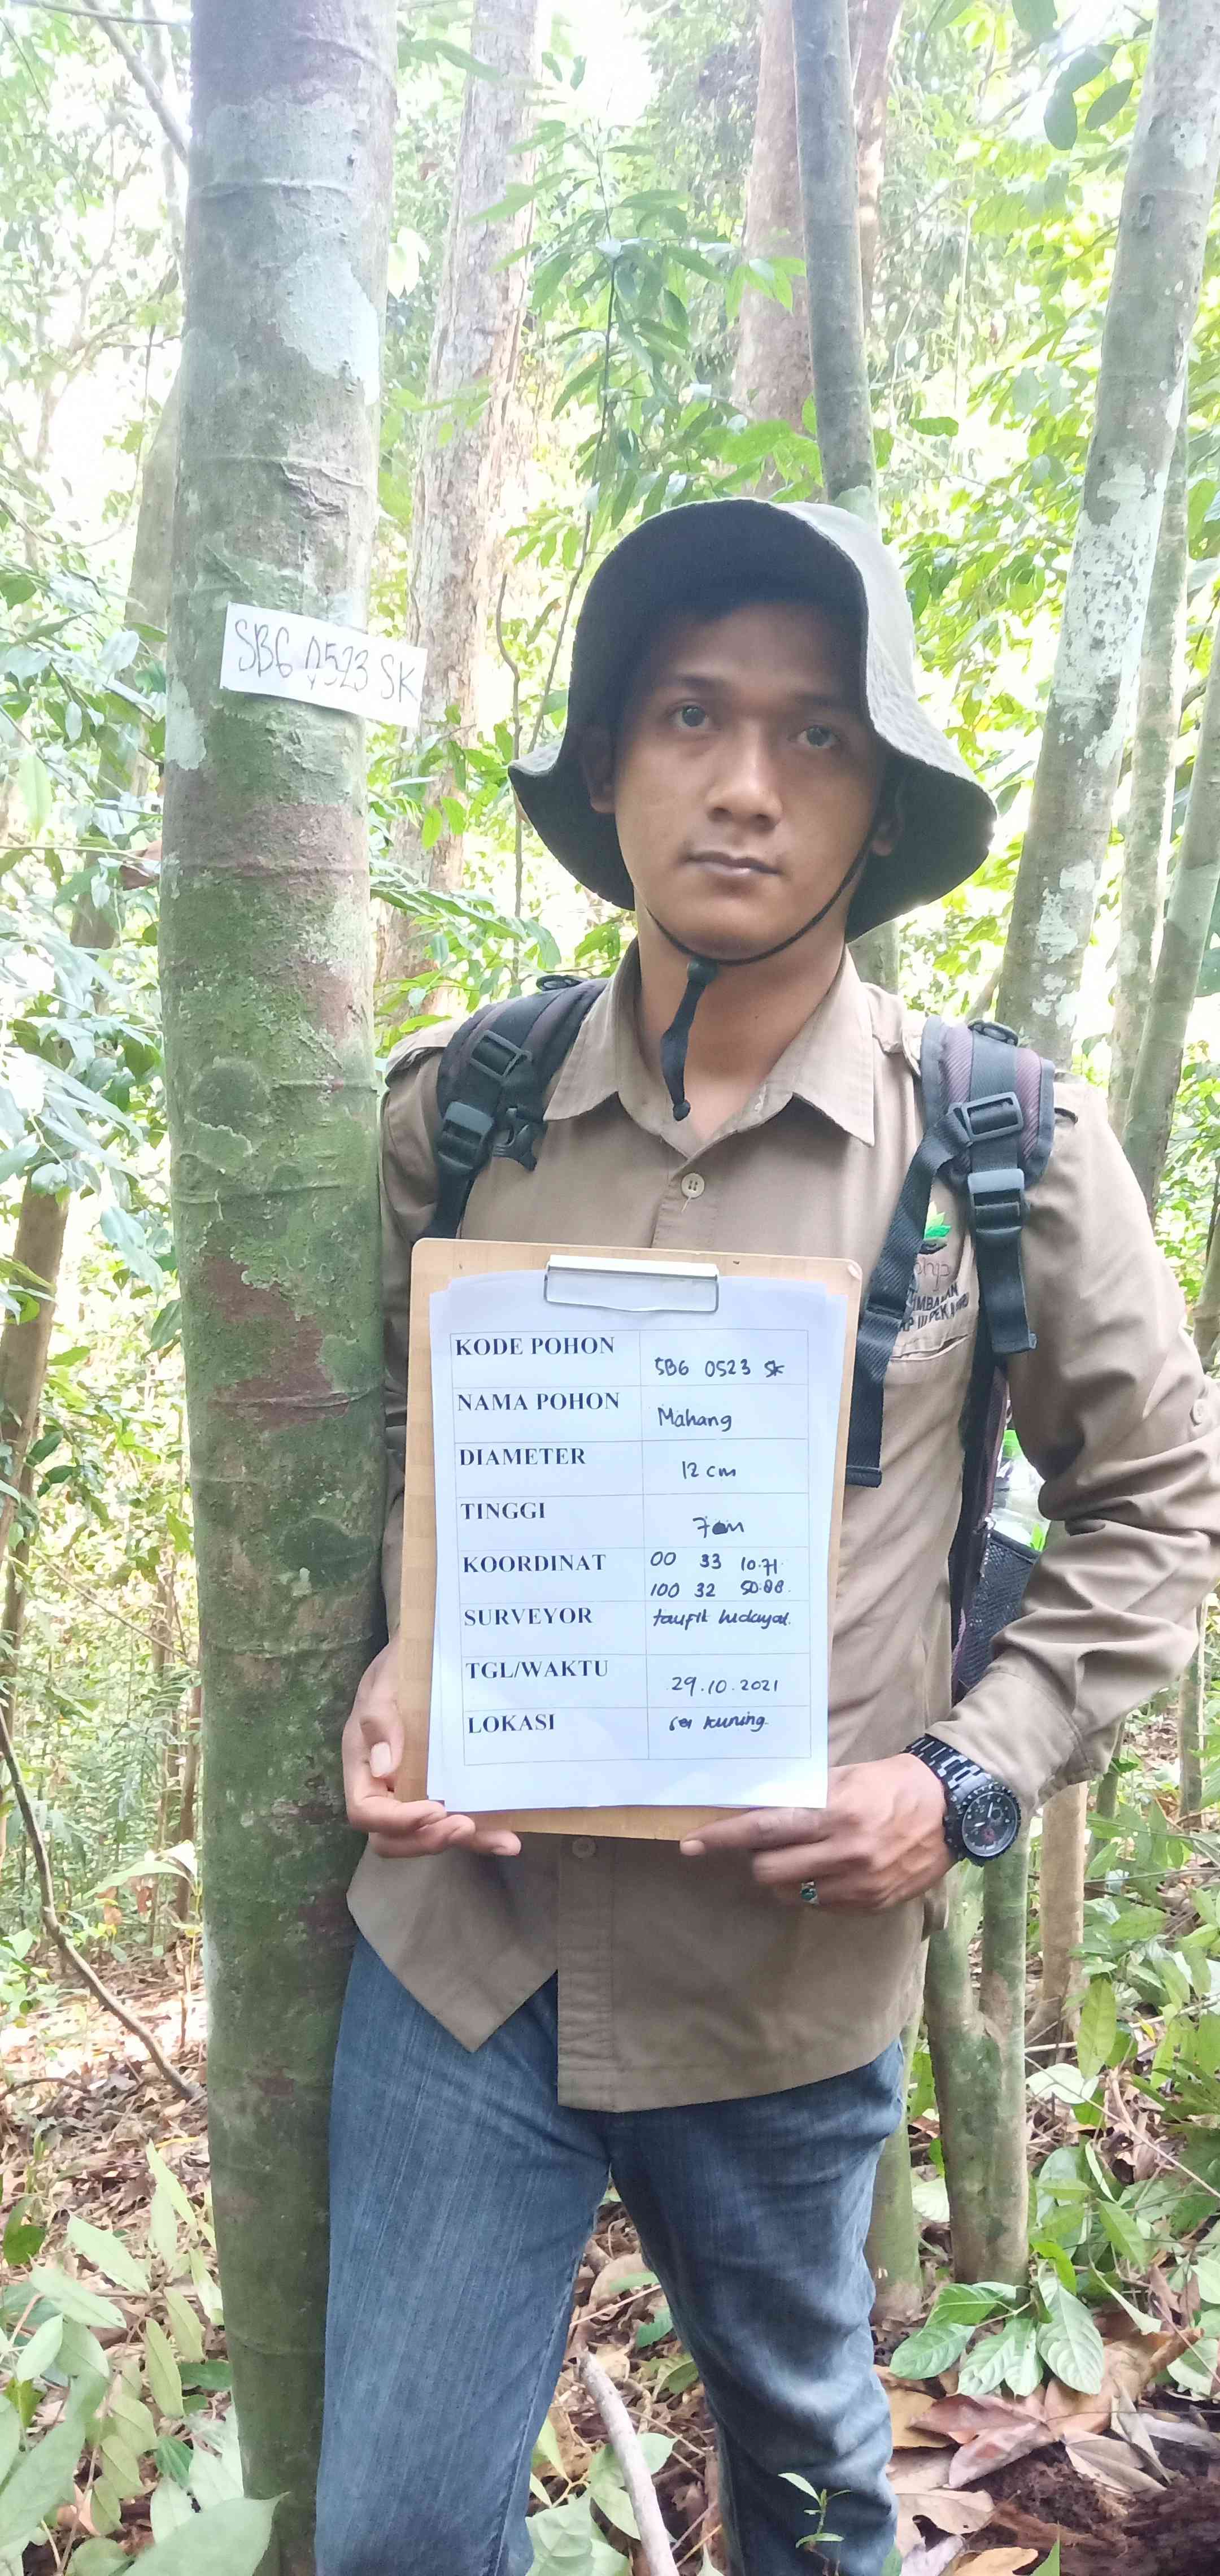 SBG 0523 SK
KODE POHON
SBG 0523 SK
NAMA POHON
Mahang
DIAMETER
12 cm
TINGGI
7 m
KOORDINAT
00 33 10.71
100 32 50.88.
SURVEYOR
taufik hidayat.
TGL/WAKTU
29.10.2021
LOKASI
sei kuning